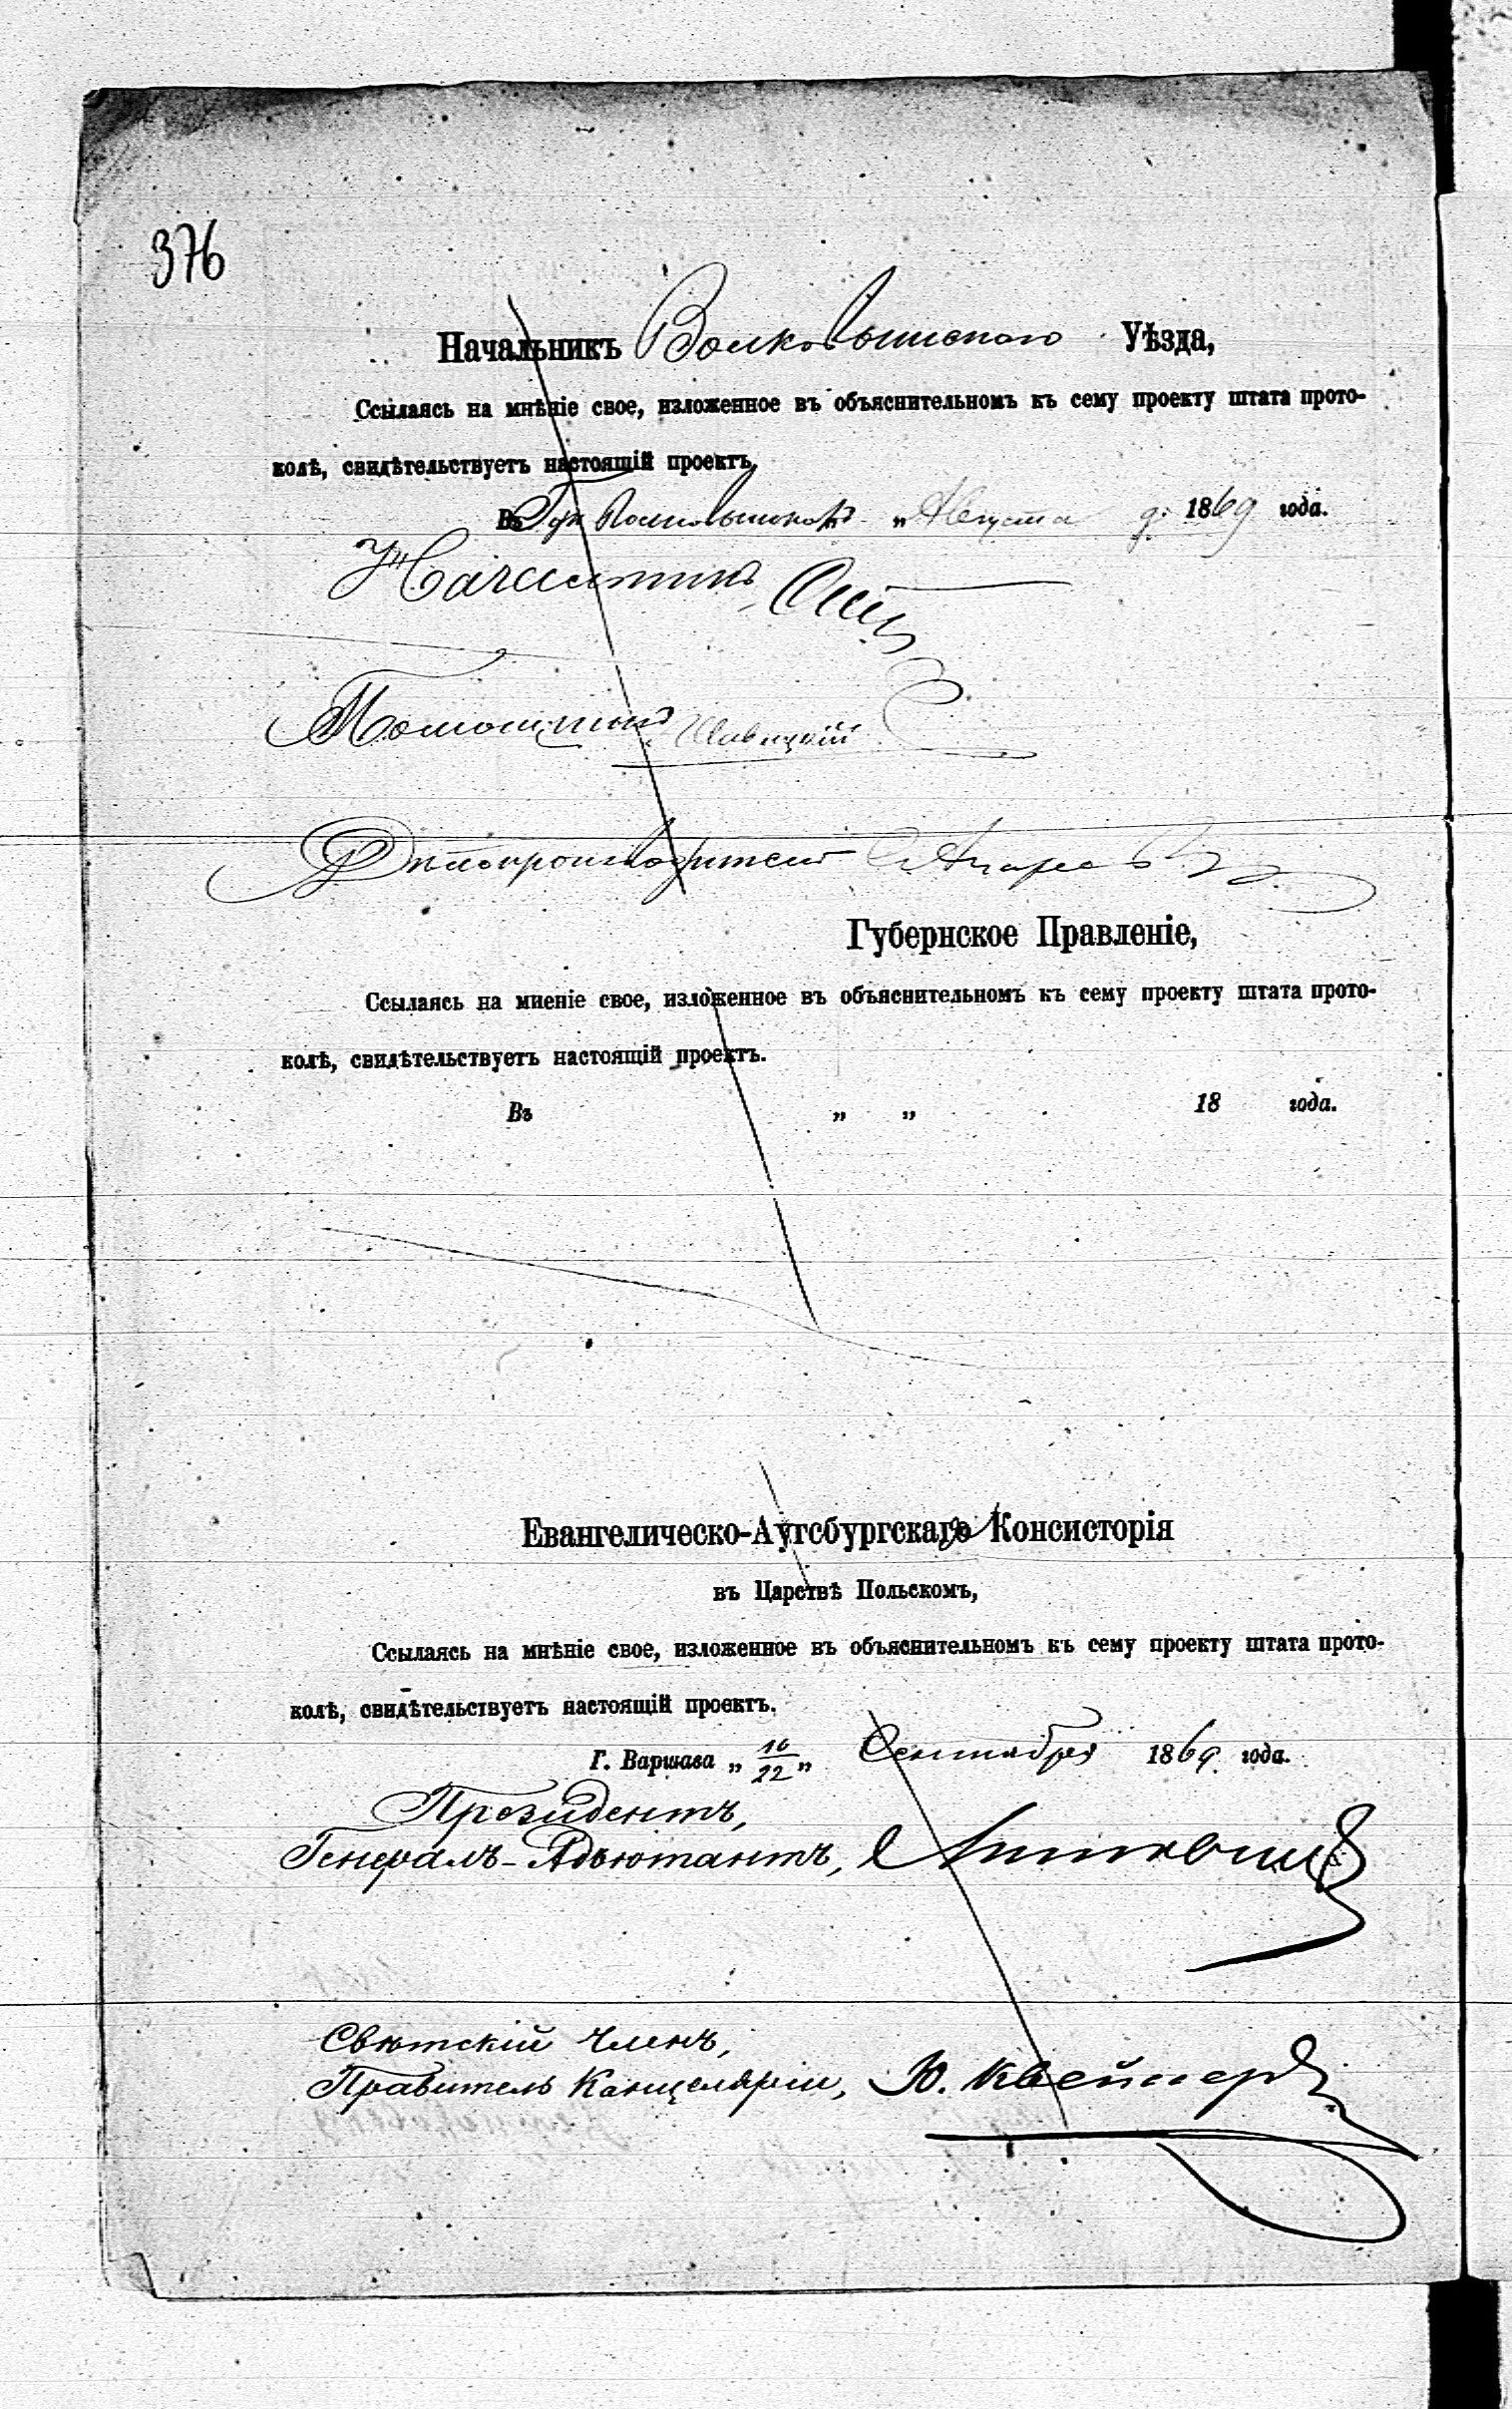 376
Начальникъ Волковышскаго Уѣзда,
Ссылаясь на мнѣніе свое, изложенное въ объяснительномъ къ сему проекту штата прото-
колѣ, свидѣтельствуетъ настоящій проектъ.
Въ Августа 1869 года.
Начальникъ
Помощникъ
Дѣлопроизводитель
Губернское Правленіе,
Ссылаясь на мненіе свое, изложенное въ объяснительномъ къ сему проекту штата прото-
колѣ, свидѣтельствуетъ настоящій проектъ.
Въ „ „ 18 года.
Евангелическо-Аугсбургская Консисторія
въ Царствѣ Польскомъ,
Ссылаясь на мнѣніе свое, изложенное въ объяснительномъ къ сему проекту штата прото-
колѣ, свидѣтельствуетъ настоящій проектъ.
Г. Варшава „ 10/22 „ Сентября 1869 года.
Президентъ,
Генералъ-Адъютантъ,
Свѣтскій Членъ,
Правитель Канцеляріи, Ю.